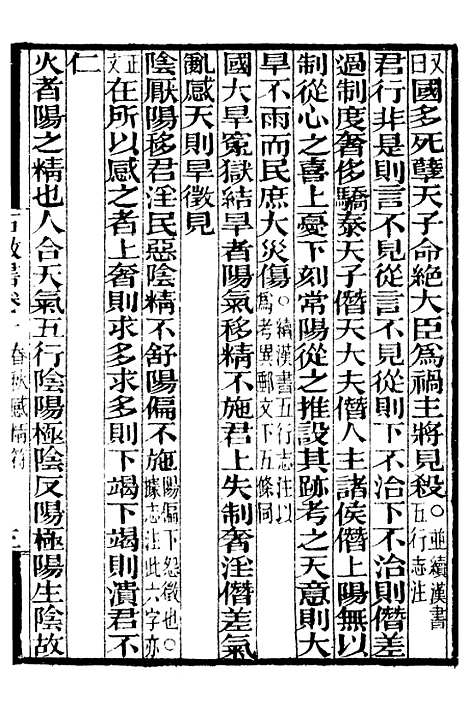 又曰國多死孽天子命絕大臣為禍主將見殺〇並續漢書五行志注
君行非是則言不見從言不見從則下不治下不治則僭差
過制度奢侈驕泰天子僭天大夫僭人主諸侯僭上陽無以
制從心之喜上憂下刻常陽從之推設其跡考之天意則大
旱不雨而民庶大災傷〇續漢書五行志注以為考異郵文下五條同
國大旱冤獄結旱者陽氣移精不施君上失制奢淫僭差氣
亂感天則旱徵見
陰厭陽移君淫民惡陰精不舒陽偏不施陽偏下怨徵也〇據志注此六字亦正文
在所以感之者上奢則求多求多則下竭下竭則潰君不
仁
火者陽之精也人合天氣五行陰陽極陰反陽極陽生陰故
古微書卷十 春秋感精符 三